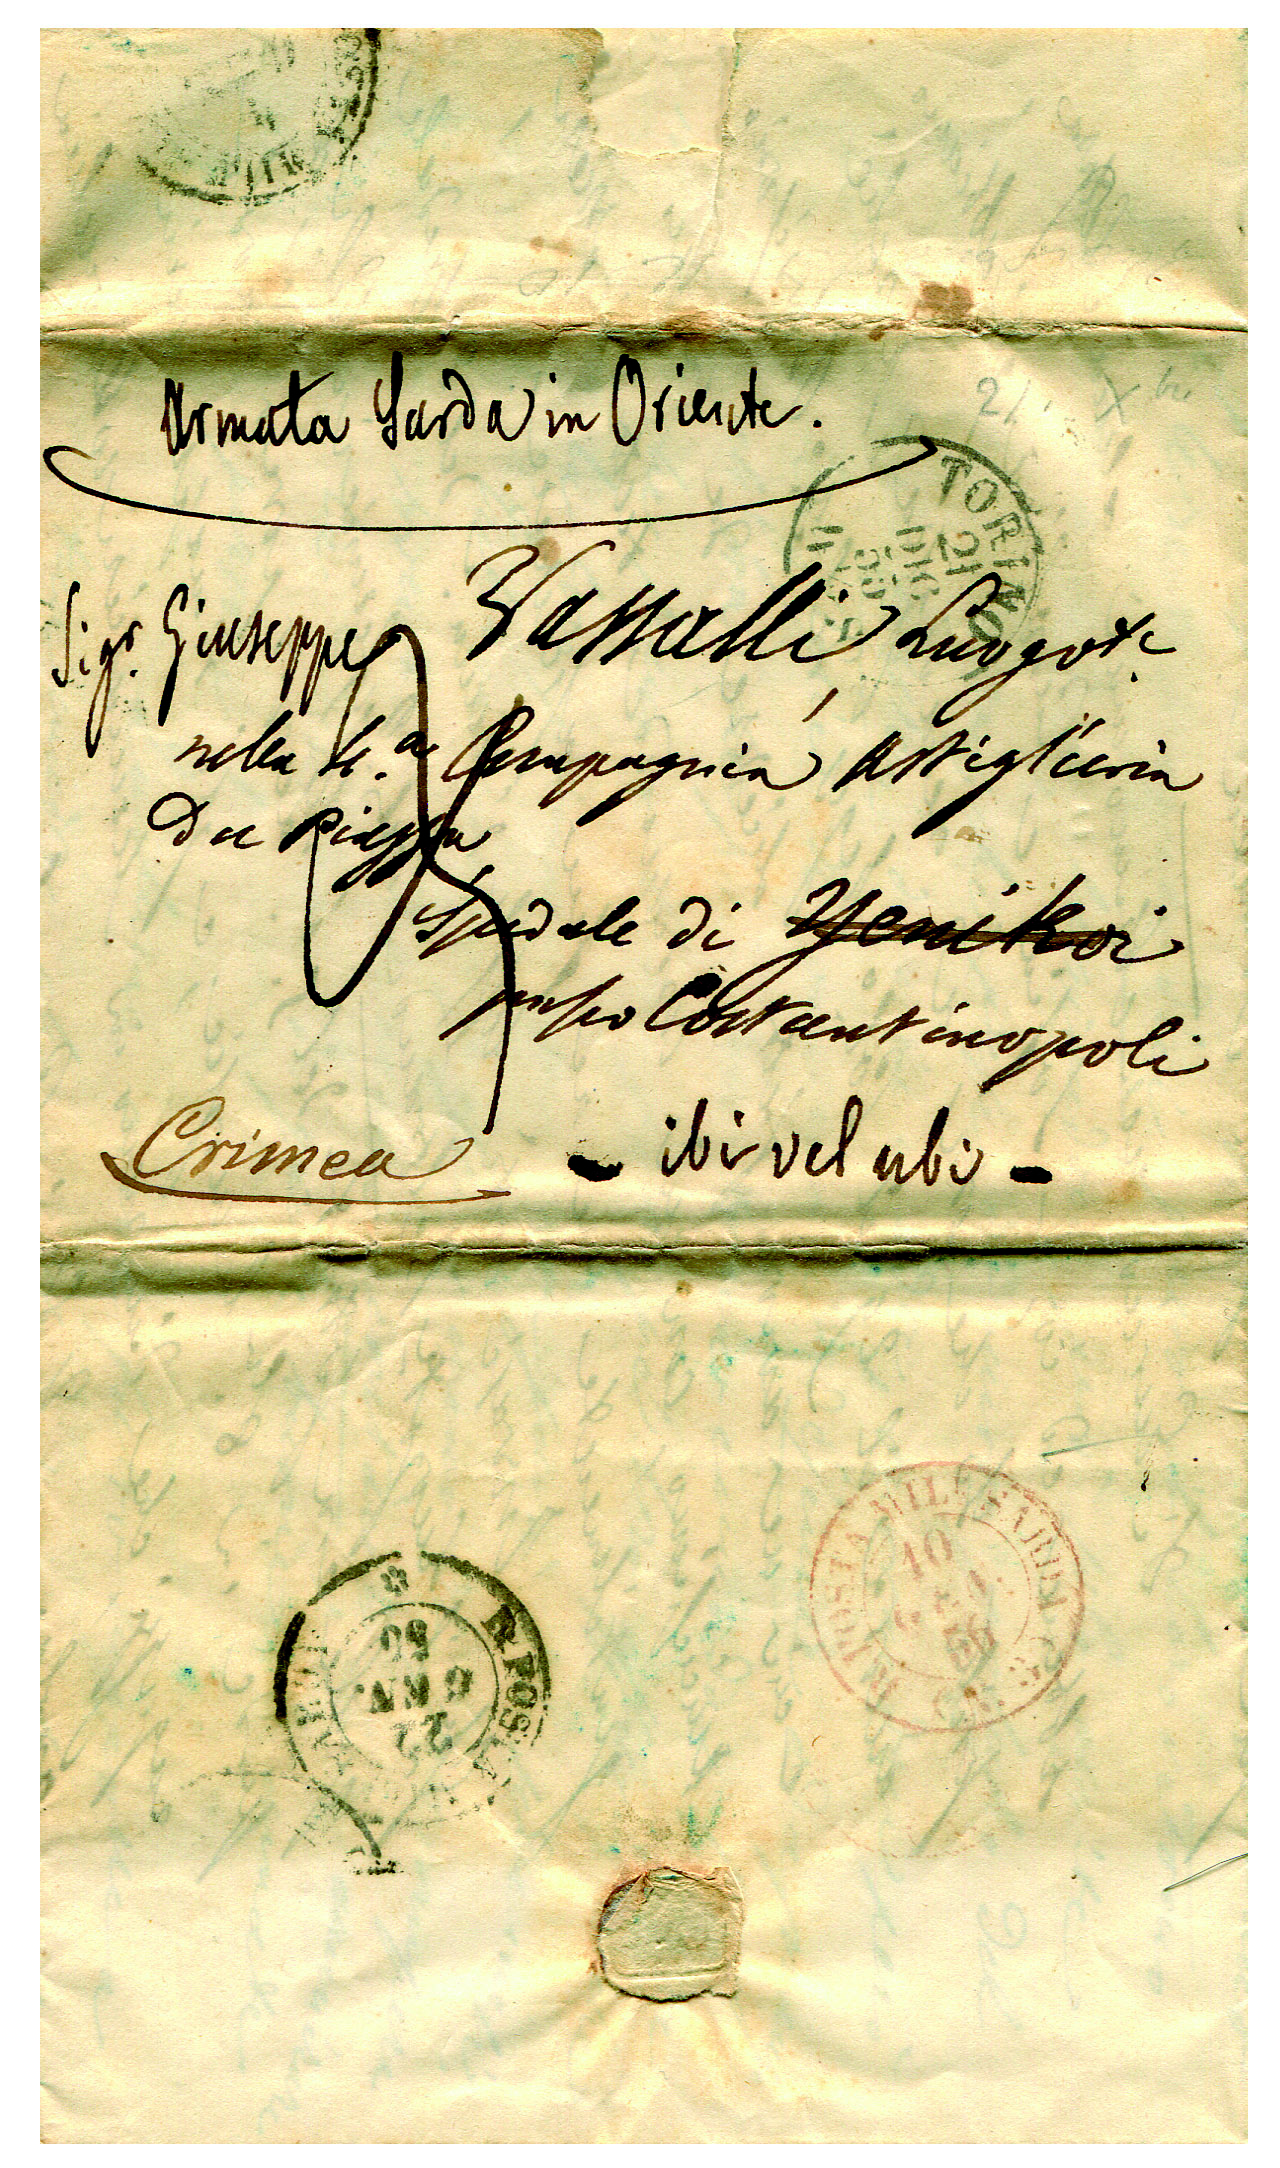 Armata Sarda in Oriente.
TORINO
21 DIC 55
Sigr. Giuseppe Vassalli Luogote.
nella 4.a Compagnia Artiglieria
da Piazza
Spedale di Yenikoi
presso Costantinopoli
Crimea
- ibi vel ubi -
R. POSTA MILE SARDA
10
GEN
56
R. POSTA
22
GEN.
56